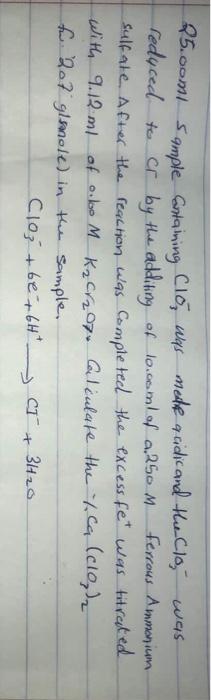 25.00ml sample containing ClO3⁻ was made acidic and the ClO3⁻ was
reduced to Cl⁻ by the adding of 10.00ml of 0.250 M ferrous Ammonium
sulfate. After the reaction was completed the excess fe⁺ was titrated
with 9.12 ml of 0.100 M K2Cr2O7. Calculate the %Ca (ClO3)2
fw 207 g/mole) in the sample.
ClO3⁻ + 6e⁻ + 6H⁺ → Cl⁻ + 3H2O